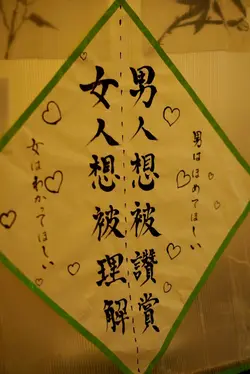 男はほめてほしい
男人想被讃賞
女人想被理解
女はわかてほしい